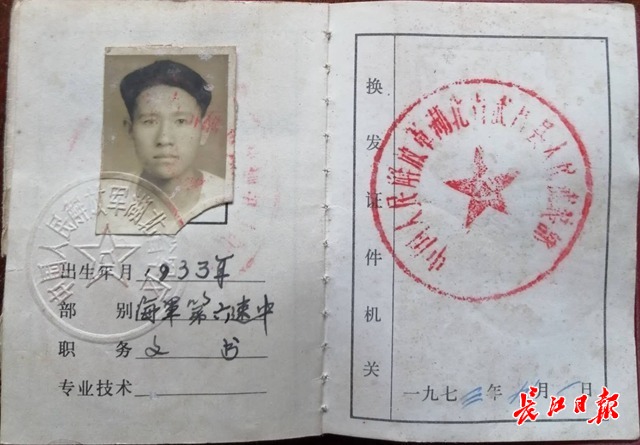 中国人民解放军湖北
出生年月 1933年
部 别 海軍第六速中
职 务 文书
专业技术
换发证件机关
中国人民解放军湖北省武昌县人民武装部
一九七三年 月一日
长江日报